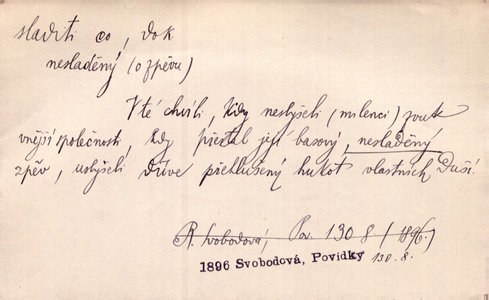 sladiti co, dok
nesladěný (o zpěvu)
V té chvíli, kdy neslyšeli (milenci) zvuk
vnější společnosti, kdy přestal její basový, nesladěný
zpěv, uslyšeli dříve přehlušený hukot vlastních Duší.
R. Svobodová, Pov. 130 8/1896)
1896 Svobodová, Povídky 130.8.